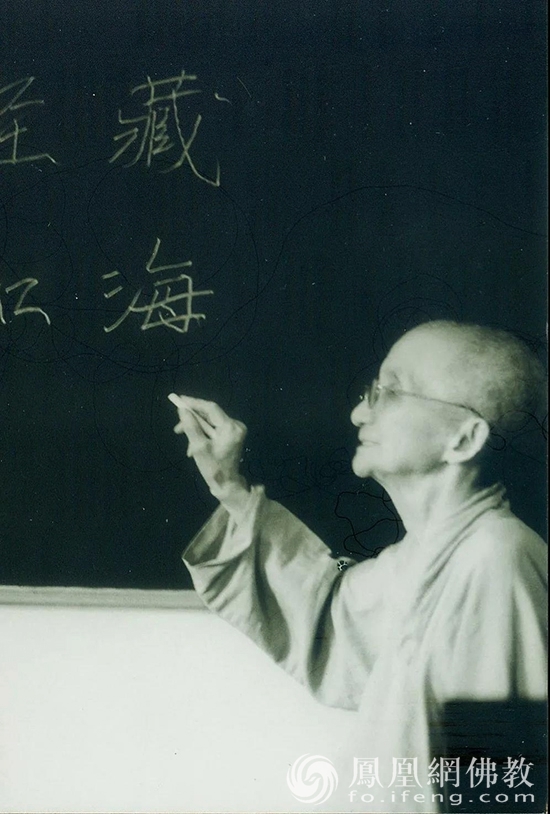 藏
海
鳳凰網佛教
fo.ifeng.com